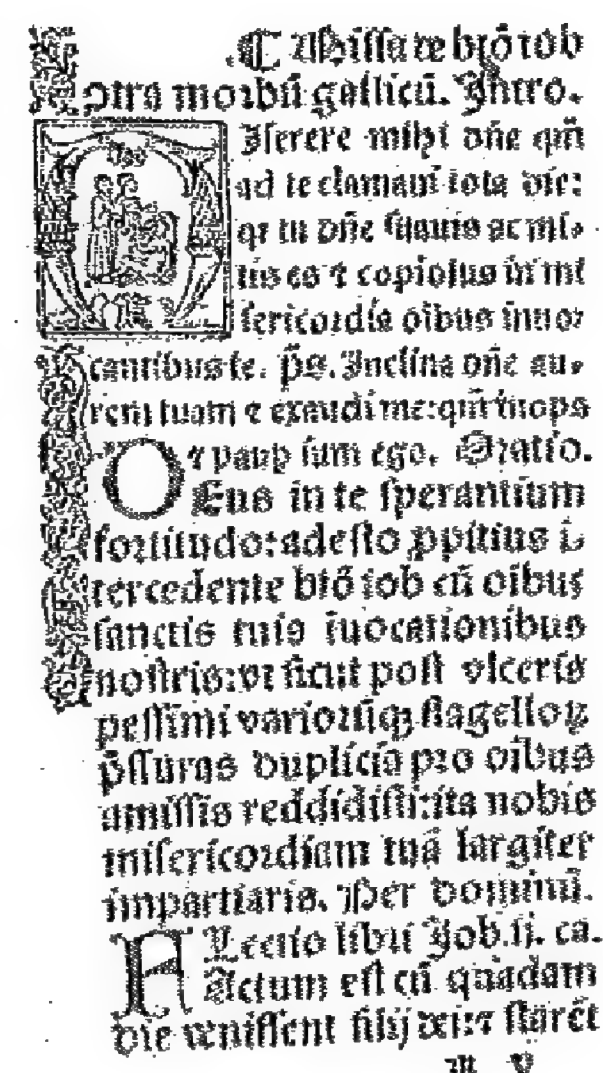 ¶ Missa de btō iob
ɔtra morbū gallicū. Intro.
Iserere mihi dñe qm̄
ad te clamaui tota die:
qꝛ tu dñe suauis ac mi-
tis es ⁊ copiosus in mi
sericordia oībus inuo-
cantibus te. p̄s. Inclina dñe au-
rem tuam ⁊ exaudi me: qm̄ inops
⁊ paup sum ego. Oratio.
DEus in te sperantium
fortitudo: adesto ꝓpitius ī
tercedente btō iob cū oibus
sanctis tuis īuocationibus
nostris: vt sicut post vlceris
pessimi variorūqꝫ flagelloꝝ
p̄ssuras duplicia pro oibus
amissis reddidisti: ita nobis
misericordiam tuā largiter
impartiaris. Per dominū.
Lectio libri Job. ij. ca.
FActum est cū quadam
die venissent filij dei: ⁊ starēt